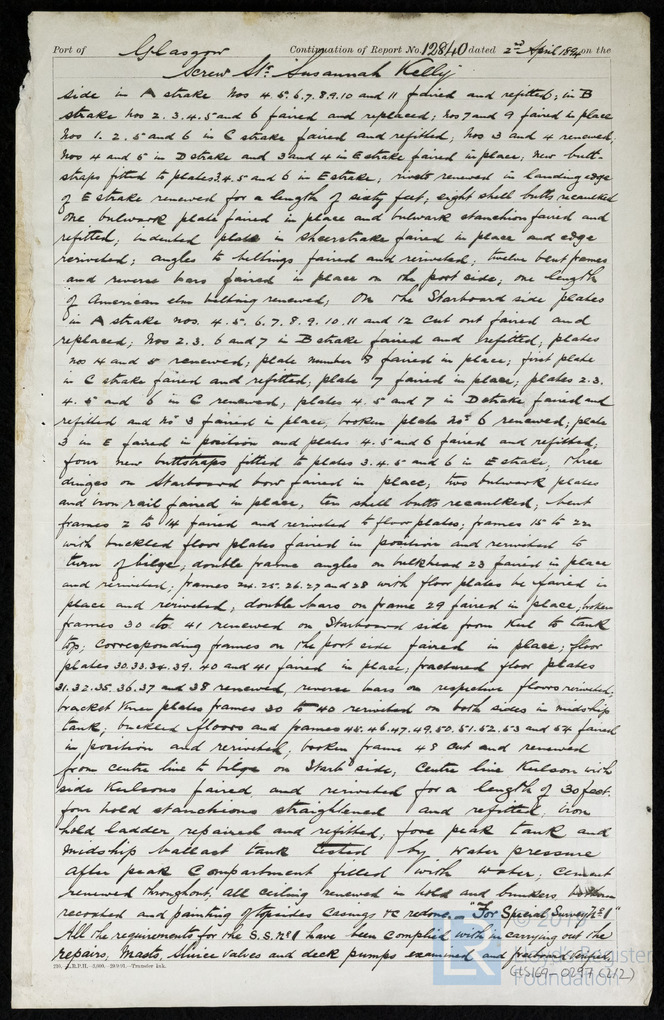 Port of Glasgow Continuation of Report No. 12840 dated 2nd April 1894 on the
Screw Str. Susannah Kelly
side in A strake Nos 4.5.6.7.8.9.10 and 11 faired and refitted; in B
strake Nos 2.3.4.5 and 6 faired and replaced; Nos 7 and 9 faired in place
Nos 1. 2. 5 and 6 in C strake faired and refitted; Nos 3 and 4 renewed;
Nos 4 and 5 in D strake and 3 and 4 in E strake faired in place; new butt-
straps fitted to plates 3.4.5 and 6 in E strake; rivets renewed in landing edge
of E strake renewed for a length of sixty feet; eight shell butts recaulked
one bulwark plate faired in place and bulwark stanchion faired and
refitted; indented plate in sheerstrake faired in place and edge
reriveted; angles to beltings faired and reriveted; twelve bent frames
and reverse bars faired in place on the port side; one length
of American elm belting renewed; On the Starboard side plates
in A strake nos. 4.5.6.7.8.9.10.11 and 12 cut out faired and
replaced; Nos 2.3.6 and 7 in B strake faired and refitted; plates
nos 4 and 5 renewed; plate number 8 faired in place; first plate
in C strake faired and refitted, plate 7 faired in place; plates 2.3.
4.5 and 6 in C renewed; plates 4.5 and 7 in D strake faired and
refitted and No 3 faired in place, broken plate No 6 renewed; plate
3 in E faired in position and plates 4.5 and 6 faired and refitted;
four new buttstraps fitted to plates 3.4.5 and 6 in E strake; three
dinges on Starboard bow faired in place; two bulwark plates
and iron rail faired in place; ten shell butts recaulked; bent
frames 2 to 14 faired and reriveted to floor plates; frames 15 to 22
with buckled floor plates faired in position and reriveted to
turn of bilge; double frame angles on bulkhead 23 faired in place
and reriveted; frames 24.25.26.27 and 28 with floor plates be faired in
place and reriveted; double bars on frame 29 faired in place, broken
frames 30 to 41 renewed on Starboard side from keel to tank
top; corresponding frames on the port side faired in place; floor
plates 30.33.34.39.40 and 41 faired in place; fractured floor plates
31.32.35.36.37 and 38 renewed, reverse bars on respective floors reriveted;
bracket knee plates frames 30 to 40 reriveted on both sides in midship
tank; buckled floors and frames 45.46.47.49.50.51.52.53 and 54 faired
in position and reriveted; broken frame 48 cut and renewed
from centre line to bilge on Starbd side; centre line keelson with
side keelsons faired and reriveted for a length of 30 feet.
four hold stanchions straightened and refitted, iron
hold ladder repaired and refitted; fore peak tank and
midship ballast tank tested by water pressure
after peak compartment filled with water; cement
renewed throughout; all ceiling renewed in hold and bunkers
recoated and painting of topsides casings &c redone. "For Special Survey No 1"
All the requirements for the S.S. No 1 have been complied with in carrying out the
repairs, Masts, Sluice valves and deck pumps examined and freeboard verified
210. L.R.P.H.-5,000.-29.9.91.-Transfer Ink.
© 2019
LR
Lloyd's Register
Foundation
(GLS169-0297 (2/2)